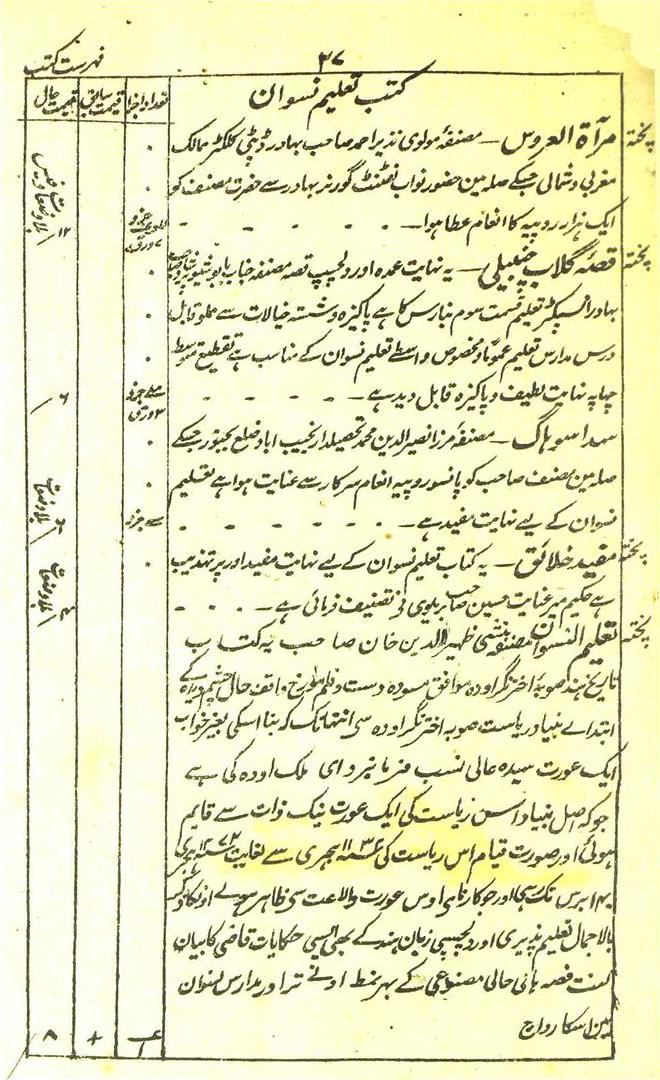 فہرست کتب
۳۷
کتب تعلیم نسوان
تعداد اجزا قیمت سابق قیمت حال
پختہ مرآة العروس ۔ مصنفۂ مولوی نذیر احمد صاحب بہادر ڈپٹی کلکٹر ممالک
مغربی و شمالی جسکے صلہ مین حضور نواب لفٹنٹ گورنر بہادر سے حضرت مصنف کو
ایک ہزار روپیہ کا انعام عطا ہوا۔
۱۲
پختہ قصۂ گلاب چنبیلی ۔ یہ نہایت عمدہ اور دلچسپ قصہ مصنفہ جناب بابو شیو پرشاد صاحب
بہادر انسپکٹر تعلیم قسمت سوم بنارس کا ہے پاکیزہ و شستہ خیالات سے مملو قابل
درس مدارس تعلیم عموماً و مخصوص واسطے تعلیم نسوان کے مناسب ہے تقطیع متوسط
چھاپہ نہایت لطیف و پاکیزہ قابل دید ہے ۔
۳ ورق ۶
سدا سوہاگ ۔ مصنفۂ مرزا نصیر الدین محمد تحصیلدار نجیب اباد ضلع بجنور جسکے
صلہ مین مصنف صاحب کو پانسو روپیہ انعام سرکار سے عنایت ہوا ہے تعلیم
نسوان کے لیے نہایت مفید ہے ۔
پختہ مفید خلائق ۔ یہ کتاب تعلیم نسوان کے لیے نہایت مفید اور پر تہذیب
ہے حکیم میر عنایت حسین صاحب بریلوی نے تصنیف فرمائی ہے ۔
پختہ تعلیم النسوان مصنفہ منشی ظہیر الدین خان صاحب یہ کتاب
تاریخ ہند صوبۂ اختر نگر اودہ موافق مسودہ دست و قلم مورخ واقف حال چشم دیدہ کے
ابتداے بنیاد ریاست صوبہ اختر نگر اودہ سی انتہا تک کہ بنا اسکی بغیر خواب
ایک عورت سیدہ عالی نسب فرمانروای ملک اودہ کی ہے
جو کہ اصل بنیاد اس ریاست کی ایک عورت نیک ذات سے قایم
ہوئی اور صورت قیام اس ریاست کی ۱۱۳۶ ہجری سے لغایت ۱۲۷۲ ہجری
برس تک رہی اور جو کارنامی اوس عورت والا عت سی ظاہر ہوے
بالاجمال تعلیم پذیری اور دلچسپی زبان ہند کے بھی ایسی حکایات قاضی کا بیان
قصہ ہائی حالی مصنوعی کے بہر نمط اور مدارس نسوان
مین اسکا رواج
+ ۸